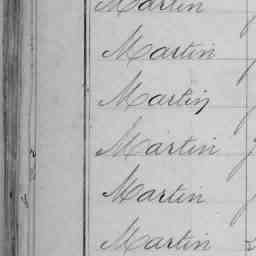 Martin
Martin
Martin
Martin
Martin
Martin